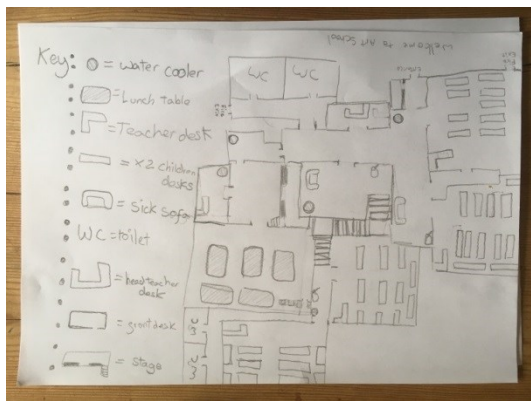 Key:
= water cooler
= Lunch table
= Teacher desk
= x2 children
desks
= Sick sofa
WC = toilet
= headteacher
desk
= front desk
= stage
Wellcome to Art School
WC
WC
WC
WC